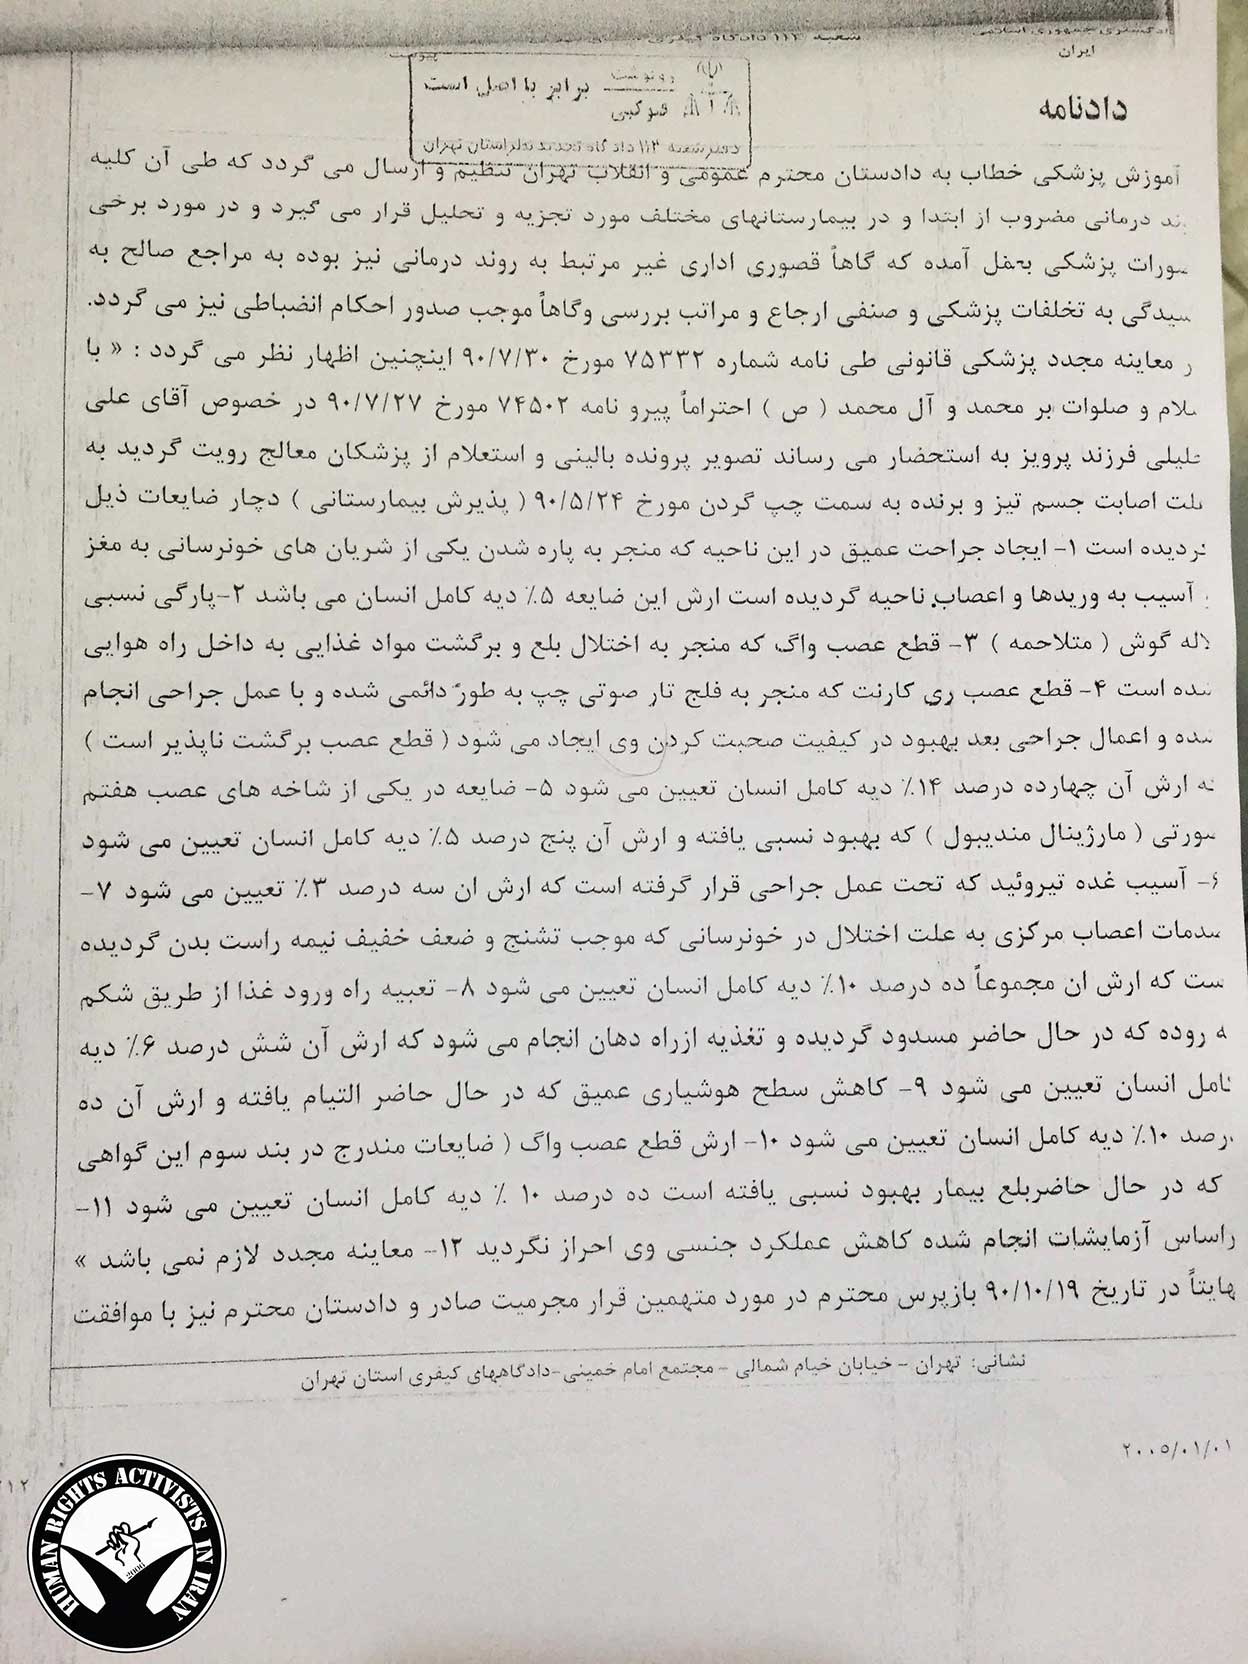 دادگستری جمهوری اسلامی
ایران
شعبه ۱۱۲ دادگاه
پیوست
رونوشت
برابر با اصل است
دفتر شعبه ۱۱۲ دادگاه تجدید نظر استان تهران
دادنامه
آموزش پزشکی خطاب به دادستان محترم عمومی و انقلاب تهران تنظیم و ارسال می گردد که طی آن کلیه
ند درمانی مضروب از ابتدا و در بیمارستانهای مختلف مورد تجزیه و تحلیل قرار می گیرد و در مورد برخی
صورات پزشکی بعمل آمده که گاهاً قصوری اداری غیر مرتبط به روند درمانی نیز بوده به مراجع صالح به
سیدگی به تخلفات پزشکی و صنفی ارجاع و مراتب بررسی وگاهاً موجب صدور احکام انضباطی نیز می گردد.
ر معاینه مجدد پزشکی قانونی طی نامه شماره ۷۵۳۳۲ مورخ ۹۰/۷/۳۰ اینچنین اظهار نظر می گردد : « با
سلام و صلوات بر محمد و آل محمد ( ص ) احتراماً پیرو نامه ۷۴۵۰۲ مورخ ۹۰/۷/۲۷ در خصوص آقای علی
خلیلی فرزند پرویز به استحضار می رساند تصویر پرونده بالینی و استعلام از پزشکان معالج رویت گردید به
علت اصابت جسم تیز و برنده به سمت چپ گردن مورخ ۹۰/۵/۲۴ ( پذیرش بیمارستانی ) دچار ضایعات ذیل
گردیده است ۱- ایجاد جراحت عمیق در این ناحیه که منجر به پاره شدن یکی از شریان های خونرسانی به مغز
و آسیب به وریدها و اعصاب ناحیه گردیده است ارش این ضایعه ۵٪ دیه کامل انسان می باشد ۲-پارگی نسبی
لاله گوش ( متلاحمه ) ۳- قطع عصب واگ که منجر به اختلال بلع و برگشت مواد غذایی به داخل راه هوایی
شده است ۴- قطع عصب ری کارنت که منجر به فلج تار صوتی چپ به طور دائمی شده و با عمل جراحی انجام
شده و اعمال جراحی بعد بهبود در کیفیت صحبت کردن وی ایجاد می شود ( قطع عصب برگشت ناپذیر است )
که ارش آن چهارده درصد ۱۴٪ دیه کامل انسان تعیین می شود ۵- ضایعه در یکی از شاخه های عصب هفتم
صورتی ( مارژینال مندیبول ) که بهبود نسبی یافته و ارش آن پنج درصد ۵٪ دیه کامل انسان تعیین می شود
۶- آسیب غده تیروئید که تحت عمل جراحی قرار گرفته است که ارش ان سه درصد ۳٪ تعیین می شود ۷-
صدمات اعصاب مرکزی به علت اختلال در خونرسانی که موجب تشنج و ضعف خفیف نیمه راست بدن گردیده
است که ارش ان مجموعاً ده درصد ۱۰٪ دیه کامل انسان تعیین می شود ۸- تعبیه راه ورود غذا از طریق شکم
به روده که در حال حاضر مسدود گردیده و تغذیه ازراه دهان انجام می شود که ارش آن شش درصد ۶٪ دیه
کامل انسان تعیین می شود ۹- کاهش سطح هوشیاری عمیق که در حال حاضر التیام یافته و ارش آن ده
درصد ۱۰٪ دیه کامل انسان تعیین می شود ۱۰- ارش قطع عصب واگ ( ضایعات مندرج در بند سوم این گواهی
که در حال حاضربلع بیمار بهبود نسبی یافته است ده درصد ۱۰ ٪ دیه کامل انسان تعیین می شود ۱۱-
براساس آزمایشات انجام شده کاهش عملکرد جنسی وی احراز نگردید ۱۲- معاینه مجدد لازم نمی باشد »
نهایتاً در تاریخ ۹۰/۱۰/۱۹ بازپرس محترم در مورد متهمین قرار مجرمیت صادر و دادستان محترم نیز با موافقت
نشانی: تهران - خیابان خیام شمالی - مجتمع امام خمینی-دادگاههای کیفری استان تهران
۲۰۰۵/۰۱/۰۱
HUMAN RIGHTS ACTIVISTS IN IRAN
2006